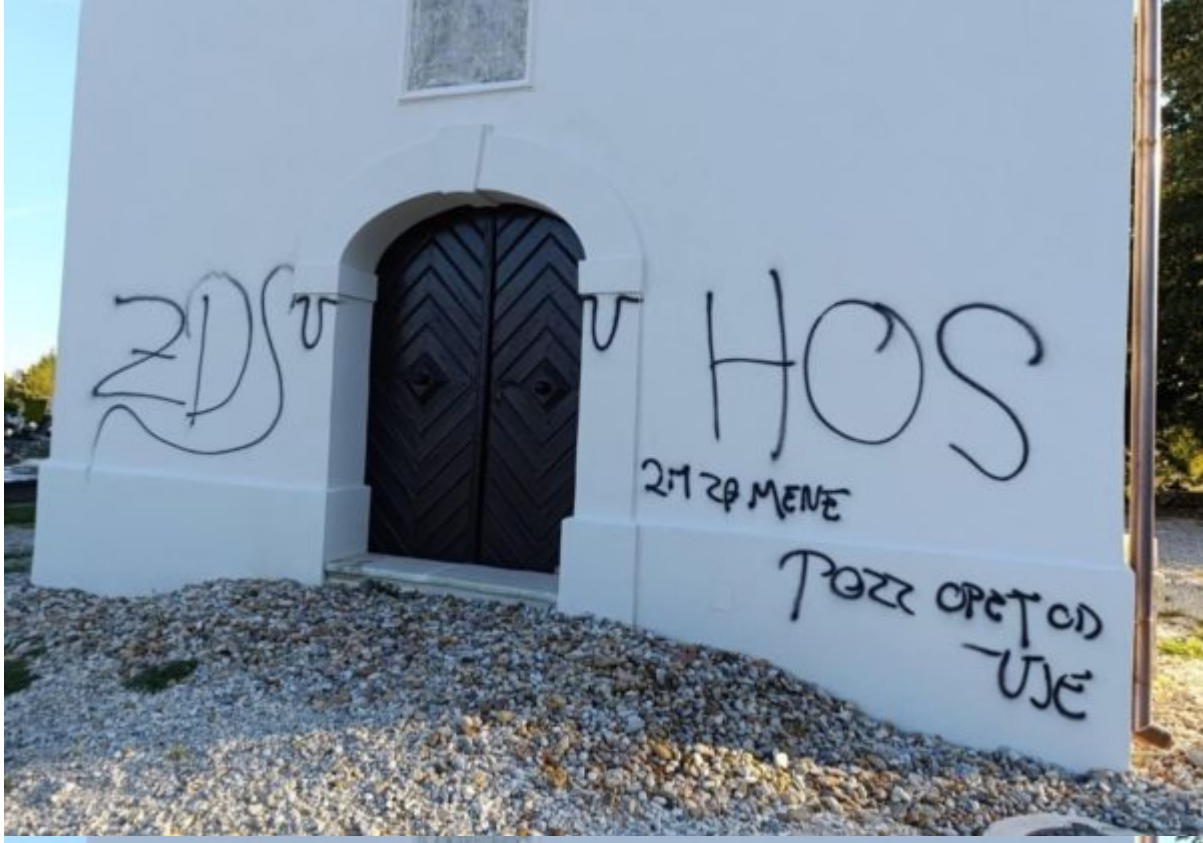 ZDS U U HOS
2M ZA MENE
POZZ OPET OD
-UJE